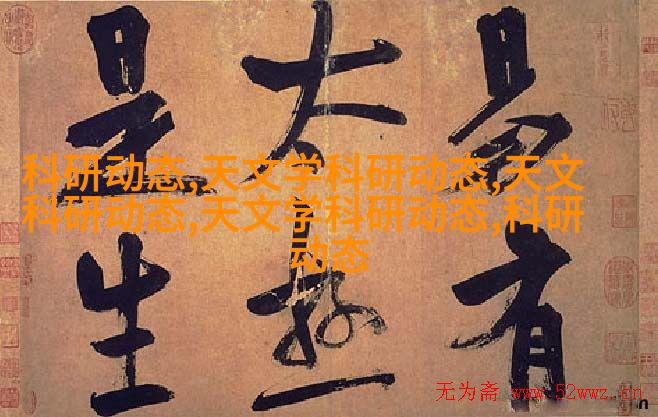 易有
太极
是生
科研动态,天文学科研动态,天文
科研动态,天文学科研动态,科研
动态
无为斋 www.52wwz.cn
n